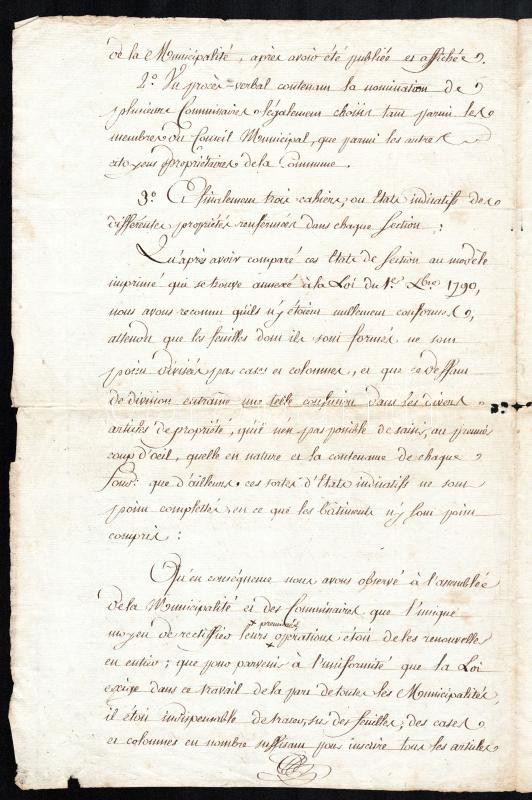 de la Municipalité, après avoir été publiée et affichée.
2.° Un procès-verbal contenant la nomination de
plusieurs Commissaires légalement choisis tant parmi les
membres du Conseil Municipal, que parmi les autres
citoyens propriétaires de la Commune.
3.° Et finalement trois cahiers, ou Etats indicatifs des
différentes propriétés renfermées dans chaque Section :
Qu'après avoir comparé ces Etats de Section au modèle
imprimé qui se trouve annexé à la Loi du 1er Xbre 1790,
nous avons reconnu qu'ils n'y étoient nullement conformes,
attendu que les feuilles dont ils sont formés ne sont
point divisées par cases et colonnes, et que ce deffaut
de division entraîne une telle confusion dans les divers
articles de propriété, qu'il n'en pas possible de saisir, au premier
coup d'oeil, quelle en nature et la contenance de chaque
fond : que d'ailleurs ces sortes d'Etats indicatifs ne sont
point complettés, en ce que les bâtiments n'y sont point
compris :
Qu'en conséquence nous avons observé à l'assemblée
de la Municipalité et des Commissaires que l'unique
moyen de rectifier leurs premières opérations étoit de les renouveller
en entier ; que pour parvenir à l'uniformité que la Loi
exige dans ce travail de la part de toutes les Municipalités,
il étoit indispensable de tracer, sur des feuilles, des cases
et colonnes en nombre suffisant pour inscrire tous les articles